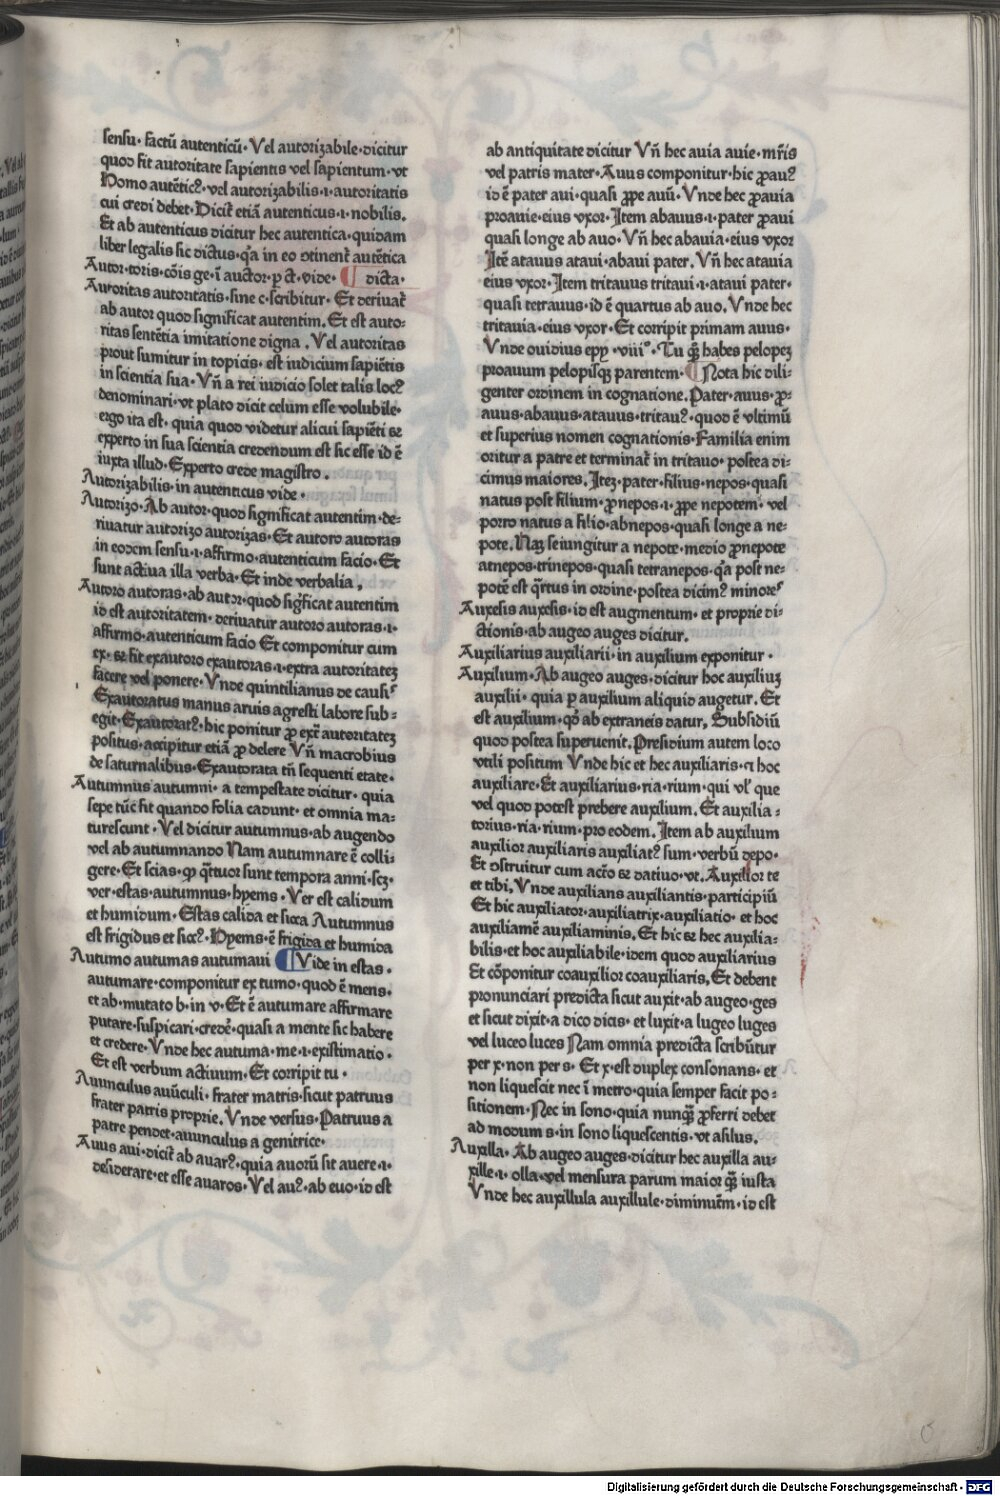 sensu· factū autenticū· Vel autorizabile·dicitur
quod fit autoritate sapientis vel sapientum·vt
Homo autētic⁹·vel autorizabilis·i·autoritatis
cui credi debet·Dicit̄ etiā autenticus·i·nobilis.
Et ab autenticus dicitur hec autentica·quidam
liber legalis sic dictus·qꝛ in eo ↄtinent̄ autētica
Autor·toris·cōis ge·ī auctor·p ct·vide· ¶ dicta·
Autoritas autoritatis·sine c·scribitur· Et deriuat̄
ab autor quod significat autentim. Et est auto⸗
ritas sentētia imitatione digna . Vel autoritas
prout sumitur in topicis· est iudicium sapiētis
in scientia sua· Vn̄ a rei iudicio solet talis loc⁹
denominari·vt plato dicit celum esse volubile·
ergo ita est· quia quod videtur alicui sapiēti ⁊
experto in sua scientia credendum est sic esse id ē
iuxta illud·Experto crede magistro.
Autorizabilis·in autenticus vide·
Autorizo·Ab autor·quod significat autentim·de⸗
riuatur autorizo autorizas·Et autoro autoras
in eodem sensu·i·affirmo·autenticum facio·Et
sunt actiua illa verba·Et inde verbalia,
Autoro autoras·ab autor·quod sig̃ficat autentim
id est autoritatem·deriuatur autoro autoras·i·
affirmo·autenticum facio Et componitur cum
ex·⁊ fit exautoro exautoras·i·extra autoritatez
facere vel ponere·Vnde quintilianus de causis
Exautoratus manus aruis agresti labore sub⸗
egit·Exautorat⁹·hic ponitur ꝓ ext̄ autoritatez
positus·accipitur etiā ꝓ delere Vn̄ macrobius
de saturnalibus·Exautorata tn̄ sequenti etate·
Autumnus autumni· a tempestate dicitur· quia
sepe tūc fit quando folia cadunt· et omnia ma⸗
turescunt· Vel dicitur autumnus·ab augendo
vel ab autumnando Nam autumnare ē colli⸗
gere·Et scias·ꝙ q̄tuor sunt tempora anni·scz·
ver·estas·autumnus·hyems· Ver est calidum
et humidum·Estas calida et sicca Autumnus
est frigidus et sicc⁹·Hyems·ē frigida et humida
Autumo autumas autumaui ¶ Vide in estas·
autumare·componitur ex tumo·quod ē mens·
et ab·mutato b·in v·Et ē autumare affirmare
putare·suspicari·credeꝛ̄·quasi a mente sic habere
et credere·Vnde hec autuma·me·i·existimatio·
Et est verbum actiuum·Et corripit tu·
Auunculus auūculi· frater matris·sicut patruus
frater patris proprie. Vnde versus·Patruus a
patre pendet·auunculus a genitrice·
Auus aui·dicit̄ ab auar⁹·quia auorū sit auere·i·
desiderare·et esse auaros·Vel au⁹·ab euo·id est
ab antiquitate dicitur Vn̄ hec auia auie·mr̄is
vel patris mater·Auus componitur·hic ꝓau⁹
id ē pater aui·quasi ꝓpe auū·Vnde hec ꝓauia
proauie·eius vxor·Item abauus·i·pater ꝓaui
quasi longe ab auo·Vn̄ hec abauia·eius vxor
Itē atauus ataui·abaui pater·Vn̄ hec atauia
eius vxor·Item tritauus tritaui·i·ataui pater·
quasi tetrauus·id ē quartus ab auo·Vnde hec
tritauia·eius vxor·Et corripit primam auus·
Vnde ouidius epp̄·viii°·Tu qq̄ habes pelopez
proauum pelopisqꝫ parentem· ¶ Nota hic dili⸗
genter ordinem in cognatione·Pater·auus·ꝓ⸗
auus·abauus·atauus·tritau⁹·quod ē vltimū
et superius nomen cognationis·Familia enim
oritur a patre et terminat̄ in tritauo·postea di⸗
cimus maiores·Itez·pater·filius·nepos·quasi
natus post filium·ꝓnepos·i·ꝓpe nepotem·vel
porro natus a filio·abnepos·quasi longe a ne⸗
pote·Naz seiungitur a nepote·medio ꝓnepote
atnepos·trinepos·quasi tetranepos·qꝛ post ne⸗
potē est q̄rtus in ordine·postea dicim⁹ minores
Auxesis auxesis·id est augmentum·et proprie di⸗
ctionis·ab augeo auges dicitur.
Auxiliarius auxiliarii·in auxilium exponitur·
Auxilium·Ab augeo auges·dicitur hoc auxiliuz
auxilii· quia p auxilium aliquid augetur. Et
est auxilium·qd̄ ab extraneis datur, Subsidiū
quod postea superuenit·Presidium autem loco
vtili positum Vnde hic et hec auxiliaris·⁊ hoc
auxiliare·Et auxiliarius·ria·rium·qui vl' que
vel quod potest prebere auxilium. Et auxilia⸗
torius·ria·rium·pro eodem. Item ab auxilium
auxilior auxiliaris auxiliat⁹ sum·verbū depo·
Et ↄstruitur cum actō ⁊ datiuo·vt. Auxilior te
et tibi. Vnde auxilians auxiliantis·participiū
Et hic auxiliator·auxiliatrix·auxiliatio· et hoc
auxiliamē auxiliaminis. Et hic ⁊ hec auxilia⸗
bilis·et hoc auxiliabile·idem quod auxiliarius
Et cōponitur coauxilior coauxiliaris. Et debent
pronunciari predicta sicut auxit·ab augeo·ges
et sicut dixit·a dico dicis·et luxit·a lugeo luges
vel luceo luces Nam omnia predicta scribūtur
per x·non per s· Et x·est duplex consonans·et
non liquescit nec ī metro·quia semper facit po⸗
sitionem·Nec in sono·quia nunqꝫ ꝓferri debet
ad modum s·in sono liquescentis·vt asilus.
Auxilla·Ab augeo auges·dicitur hec auxilla au⸗
xille·i·olla·vel mensura parum maior qꝫ iusta
Vnde hec auxillula auxillule·diminuēm·id est
Digitalisierung gefördert durch die Deutsche Forschungsgemeinschaft - DFG